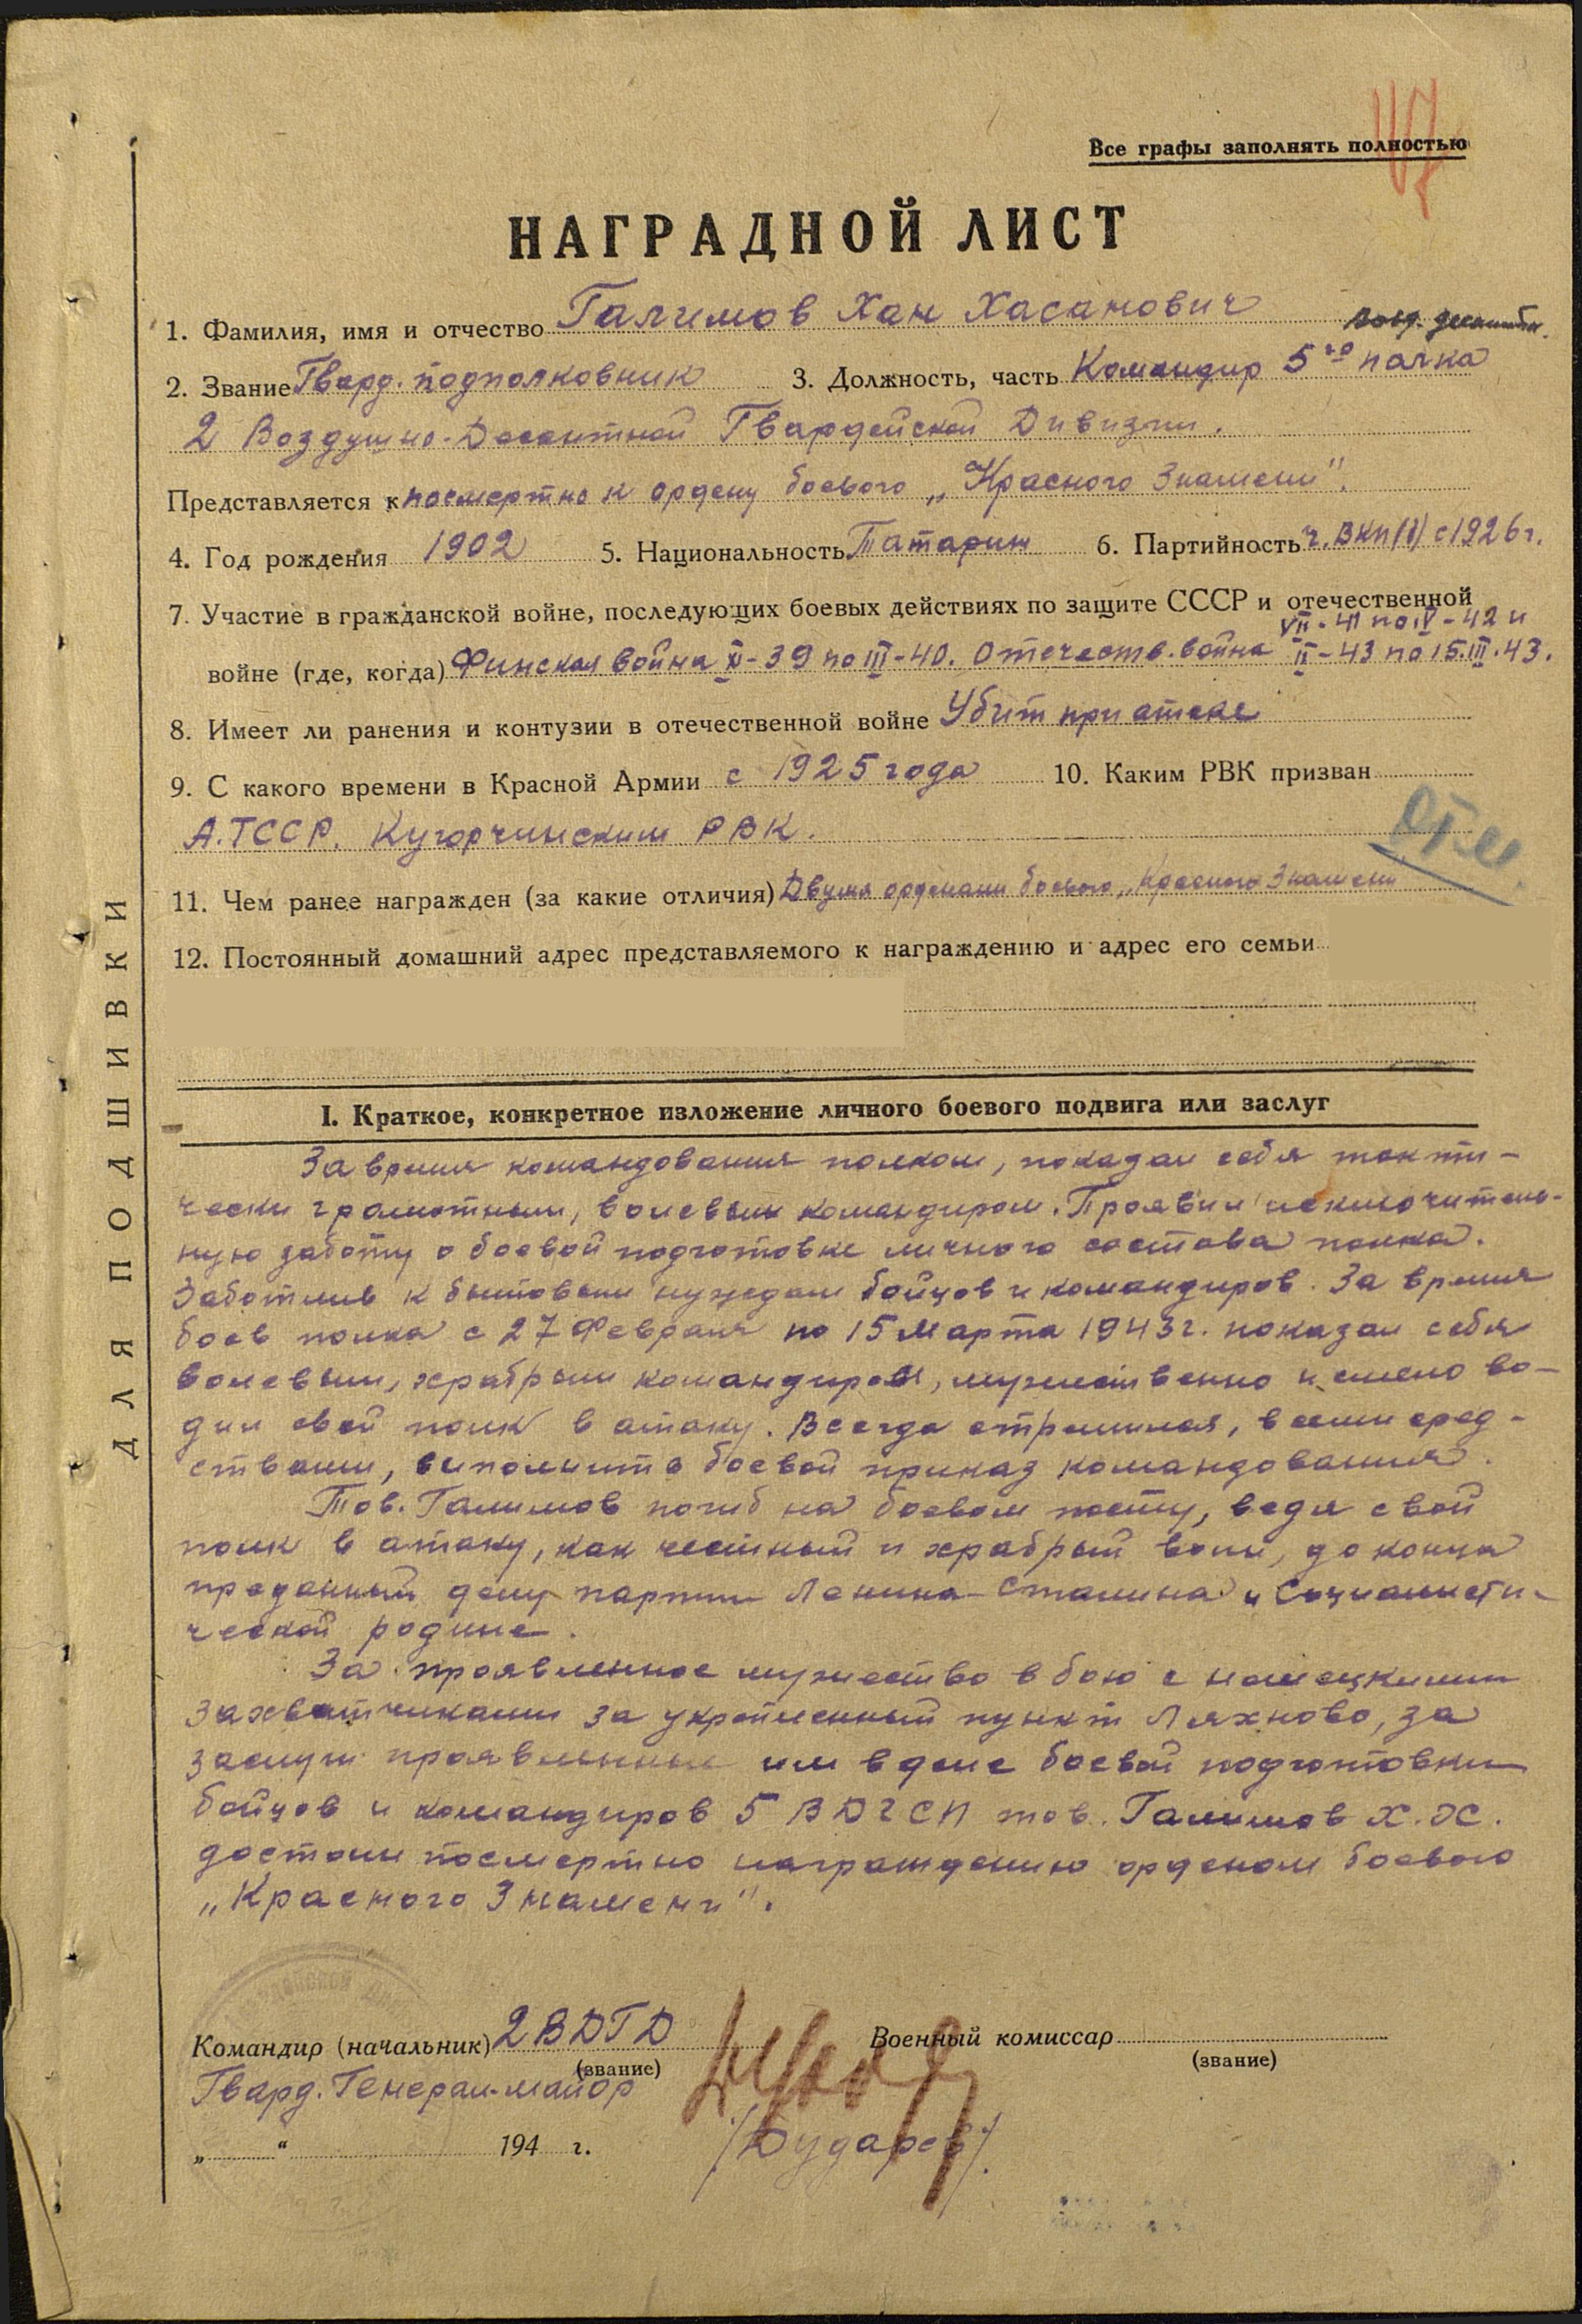 Все графы заполнять полностью
НАГРАДНОЙ ЛИСТ
1. Фамилия, имя и отчество Галимов Хан Хасанович
возд. десантн.
2. Звание Гвард. подполковник 3. Должность, часть Командир 5го полка
2 Воздушно-Десантной Гвардейской Дивизии.
Представляется к посмертно к ордену боевого „Красного Знамени".
4. Год рождения 1902 5. Национальность Татарин 6. Партийность ч. ВКП(б) с 1926 г.
7. Участие в гражданской войне, последующих боевых действиях по защите СССР и отечественной
VII-41 по IV-42 и
войне (где, когда) Финская война XI-39 по III-40. Отечеств. война II-43 по 15.III.43.
8. Имеет ли ранения и контузии в отечественной войне Убит при атаке
9. С какого времени в Красной Армии с 1925 года 10. Каким РВК призван
А.ТССР. Кугорчинским РВК.
11. Чем ранее награжден (за какие отличия) Двумя орденами боевого „Красного Знамени
12. Постоянный домашний адрес представляемого к награждению и адрес его семьи
I. Краткое, конкретное изложение личного боевого подвига или заслуг
За время командования полком, показал себя такти-
чески грамотным, волевым командиром. Проявил исключитель-
ную заботу о боевой подготовке личного состава полка.
Заботлив к бытовым нуждам бойцов и командиров. За время
боев полка с 27 Февраля по 15 Марта 1943 г. показал себя
волевым, храбрым командиром, мужественно и смело во-
дил свой полк в атаку. Всегда стремился, всеми сред-
ствами, выполнить боевой приказ командования.
Тов. Галимов погиб на боевом посту, ведя свой
полк в атаку, как честный и храбрый воин, до конца
преданный делу партии Ленина-Сталина и Социалисти-
ческой родине.
За проявленное мужество в бою с немецкими
захватчиками за укрепленный пункт Ляхново, за
заслуги проявленные им в деле боевой подготовки
бойцов и командиров 5 ВДГСП тов. Галимов Х.Х.
достоин посмертно награждению орденом боевого
„Красного Знамени".
Командир (начальник) 2 ВДГД Военный комиссар
(звание) (звание)
Гвард. Генерал-майор
„ “ 194 г. /Дударев/.
ДЛЯ ПОДШИВКИ